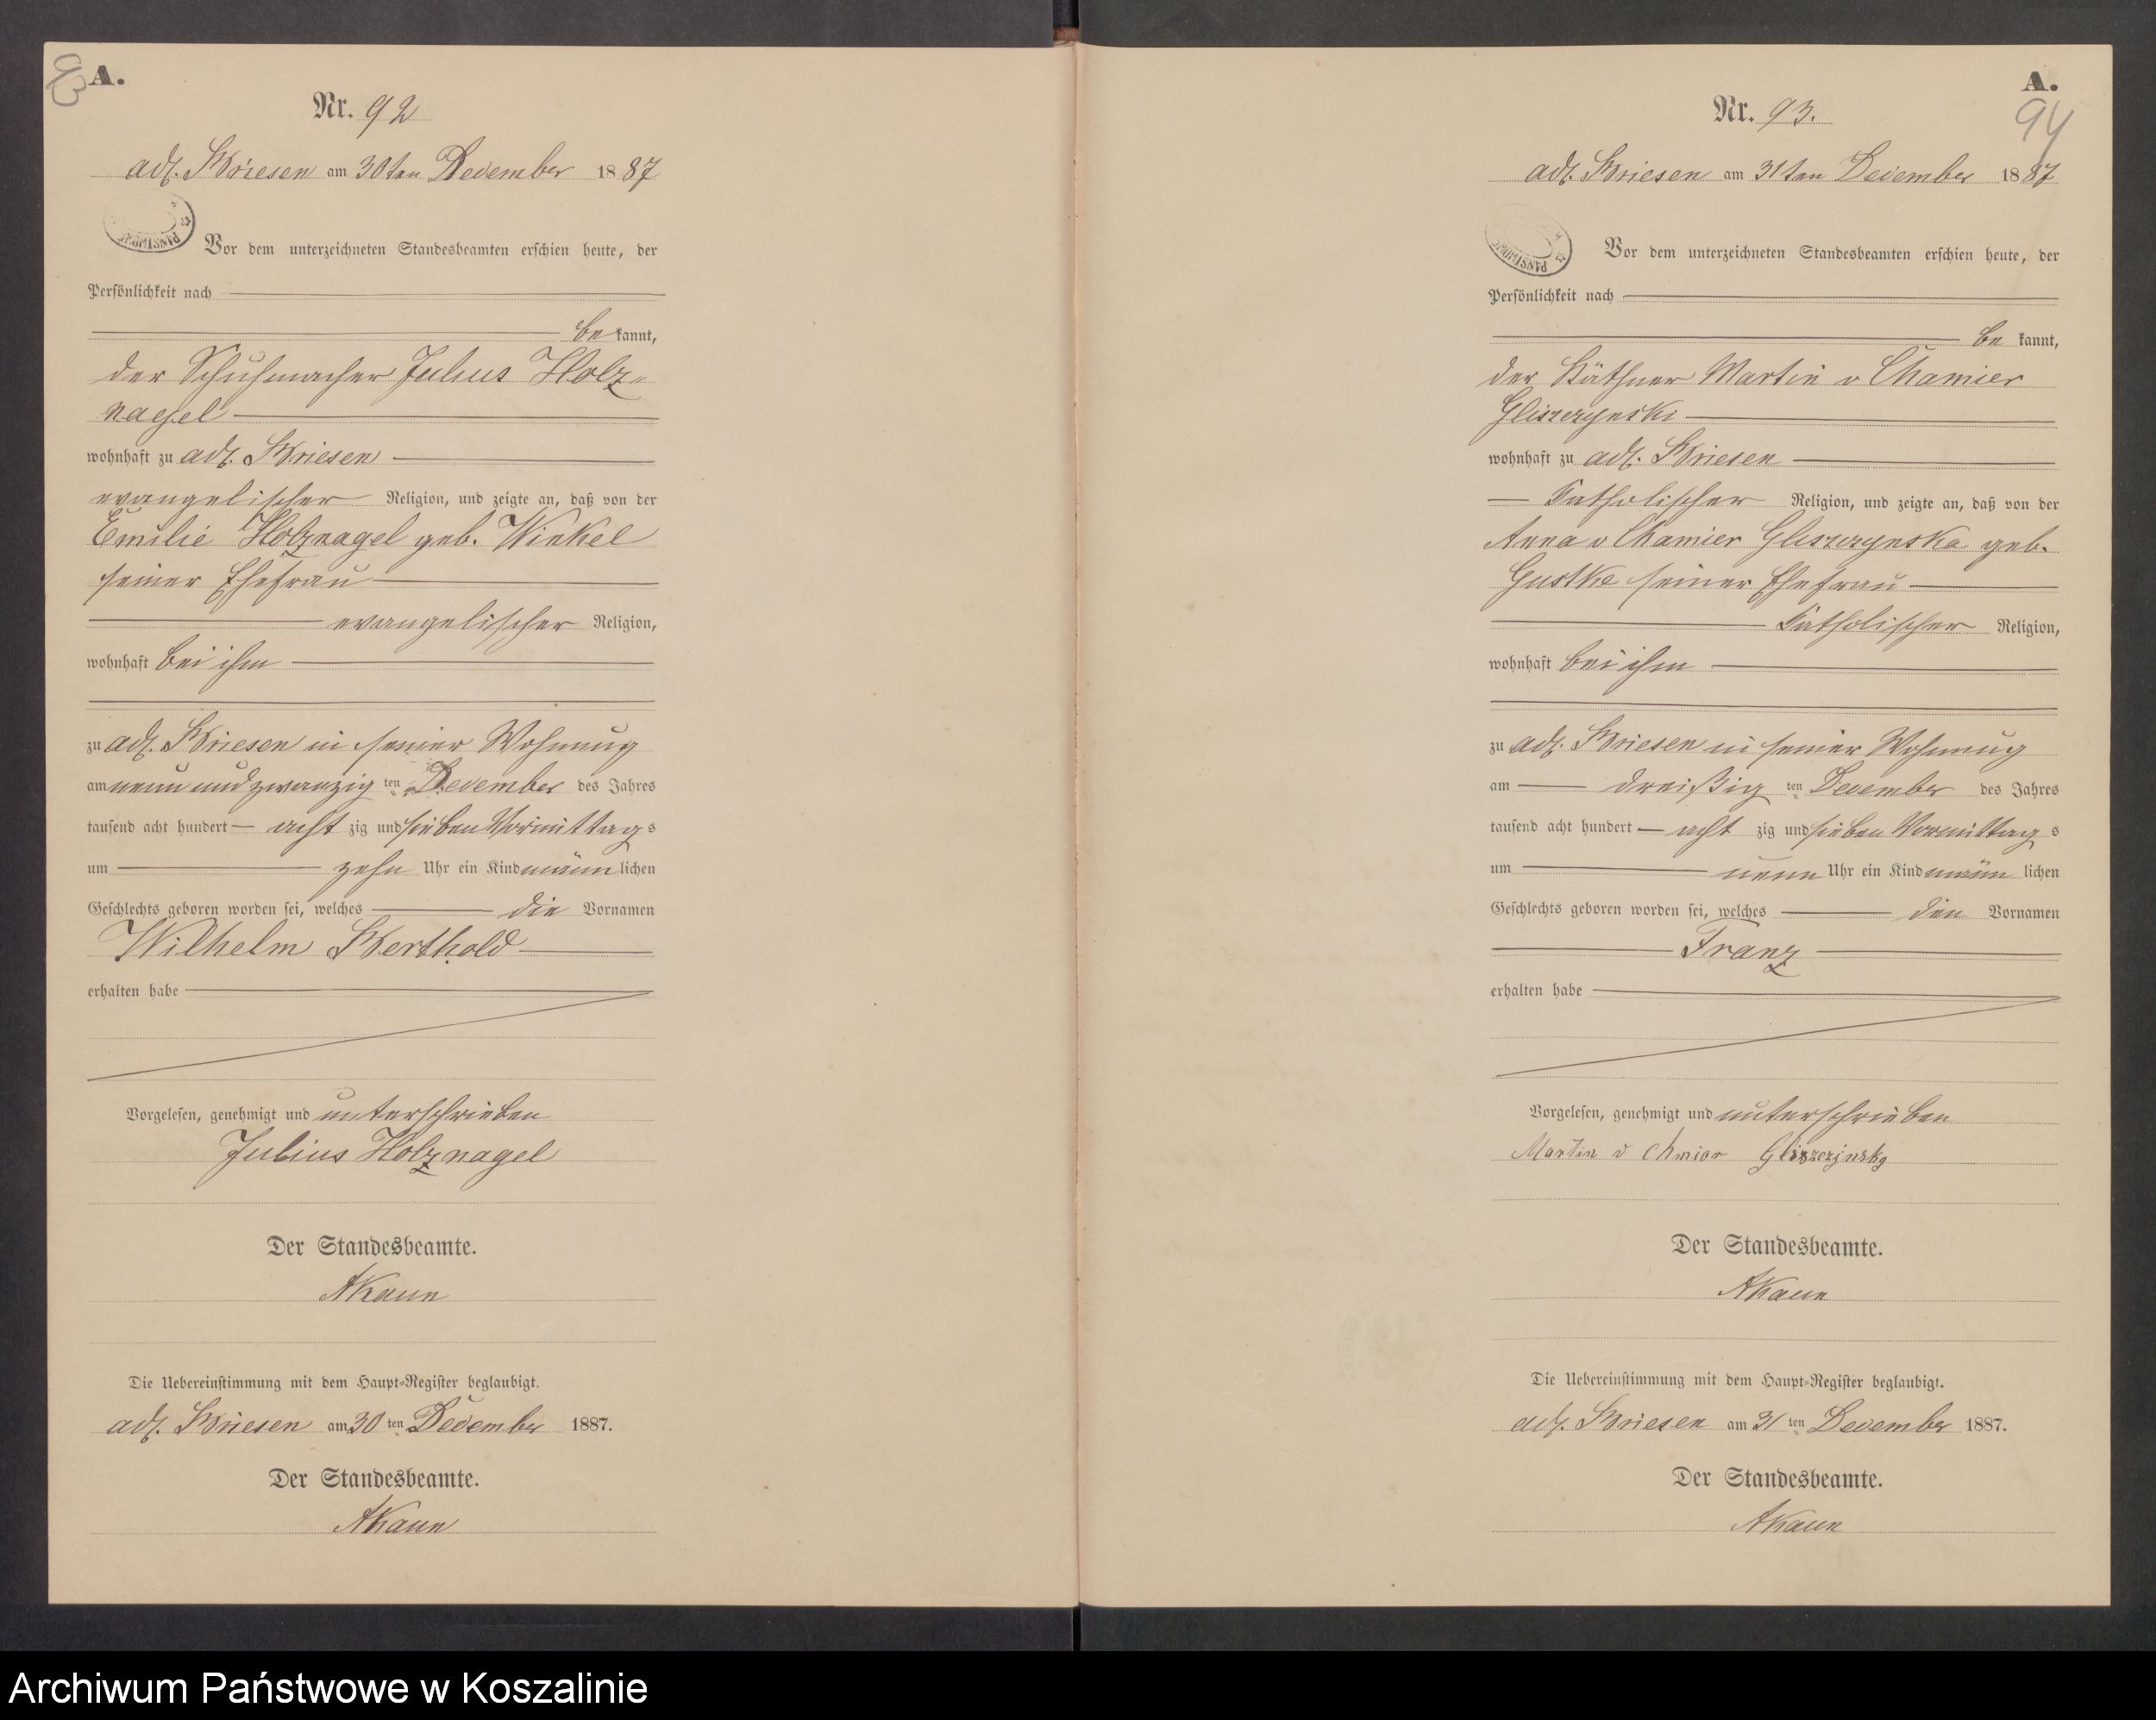 A.
Nr. 92
adl. Briesen am 30ten December 1887
Vor dem unterzeichneten Standesbeamten erschien heute, der
Persönlichkeit nach
be kannt,
der Schuhmacher Julius Holz-
nagel
wohnhaft zu adl. Briesen
evangelischer Religion, und zeigte an, daß von der
Emilie Holznagel geb. Winkel
seiner Ehefrau
evangelischer Religion,
wohnhaft bei ihm
zu adl. Briesen in seiner Wohnung
am neun und zwanzig ten December des Jahres
tausend acht hundert acht zig und sieben Vormittag s
um zehn Uhr ein Kind männ lichen
Geschlechts geboren worden sei, welches die Vornamen
Wilhelm Berthold
erhalten habe
Vorgelesen, genehmigt und unterschrieben
Julius Holznagel
Der Standesbeamte.
AKaun
Die Uebereinstimmung mit dem Haupt-Register beglaubigt.
adl. Briesen am 30 ten December 1887.
Der Standesbeamte.
AKaun
A.
94
Nr. 93.
adl. Briesen am 31ten December 1887
Vor dem unterzeichneten Standesbeamten erschien heute, der
Persönlichkeit nach
be kannt,
der Käthner Martin v Chamier
Gliszczynski
wohnhaft zu adl. Briesen
katholischer Religion, und zeigte an, daß von der
Anna v Chamier Gliszczynska geb.
Gustke seiner Ehefrau
katholischer Religion,
wohnhaft bei ihm
zu adl. Briesen in seiner Wohnung
am dreißig ten December des Jahres
tausend acht hundert acht zig und sieben Vormittag s
um neun Uhr ein Kind männ lichen
Geschlechts geboren worden sei, welches den Vornamen
Franz
erhalten habe
Vorgelesen, genehmigt und unterschrieben
Martin v Chmior Gliszczjnsky
Der Standesbeamte.
AKaun
Die Uebereinstimmung mit dem Haupt-Register beglaubigt.
adl. Briesen am 31 ten December 1887.
Der Standesbeamte.
AKaun
Archiwum Państwowe w Koszalinie